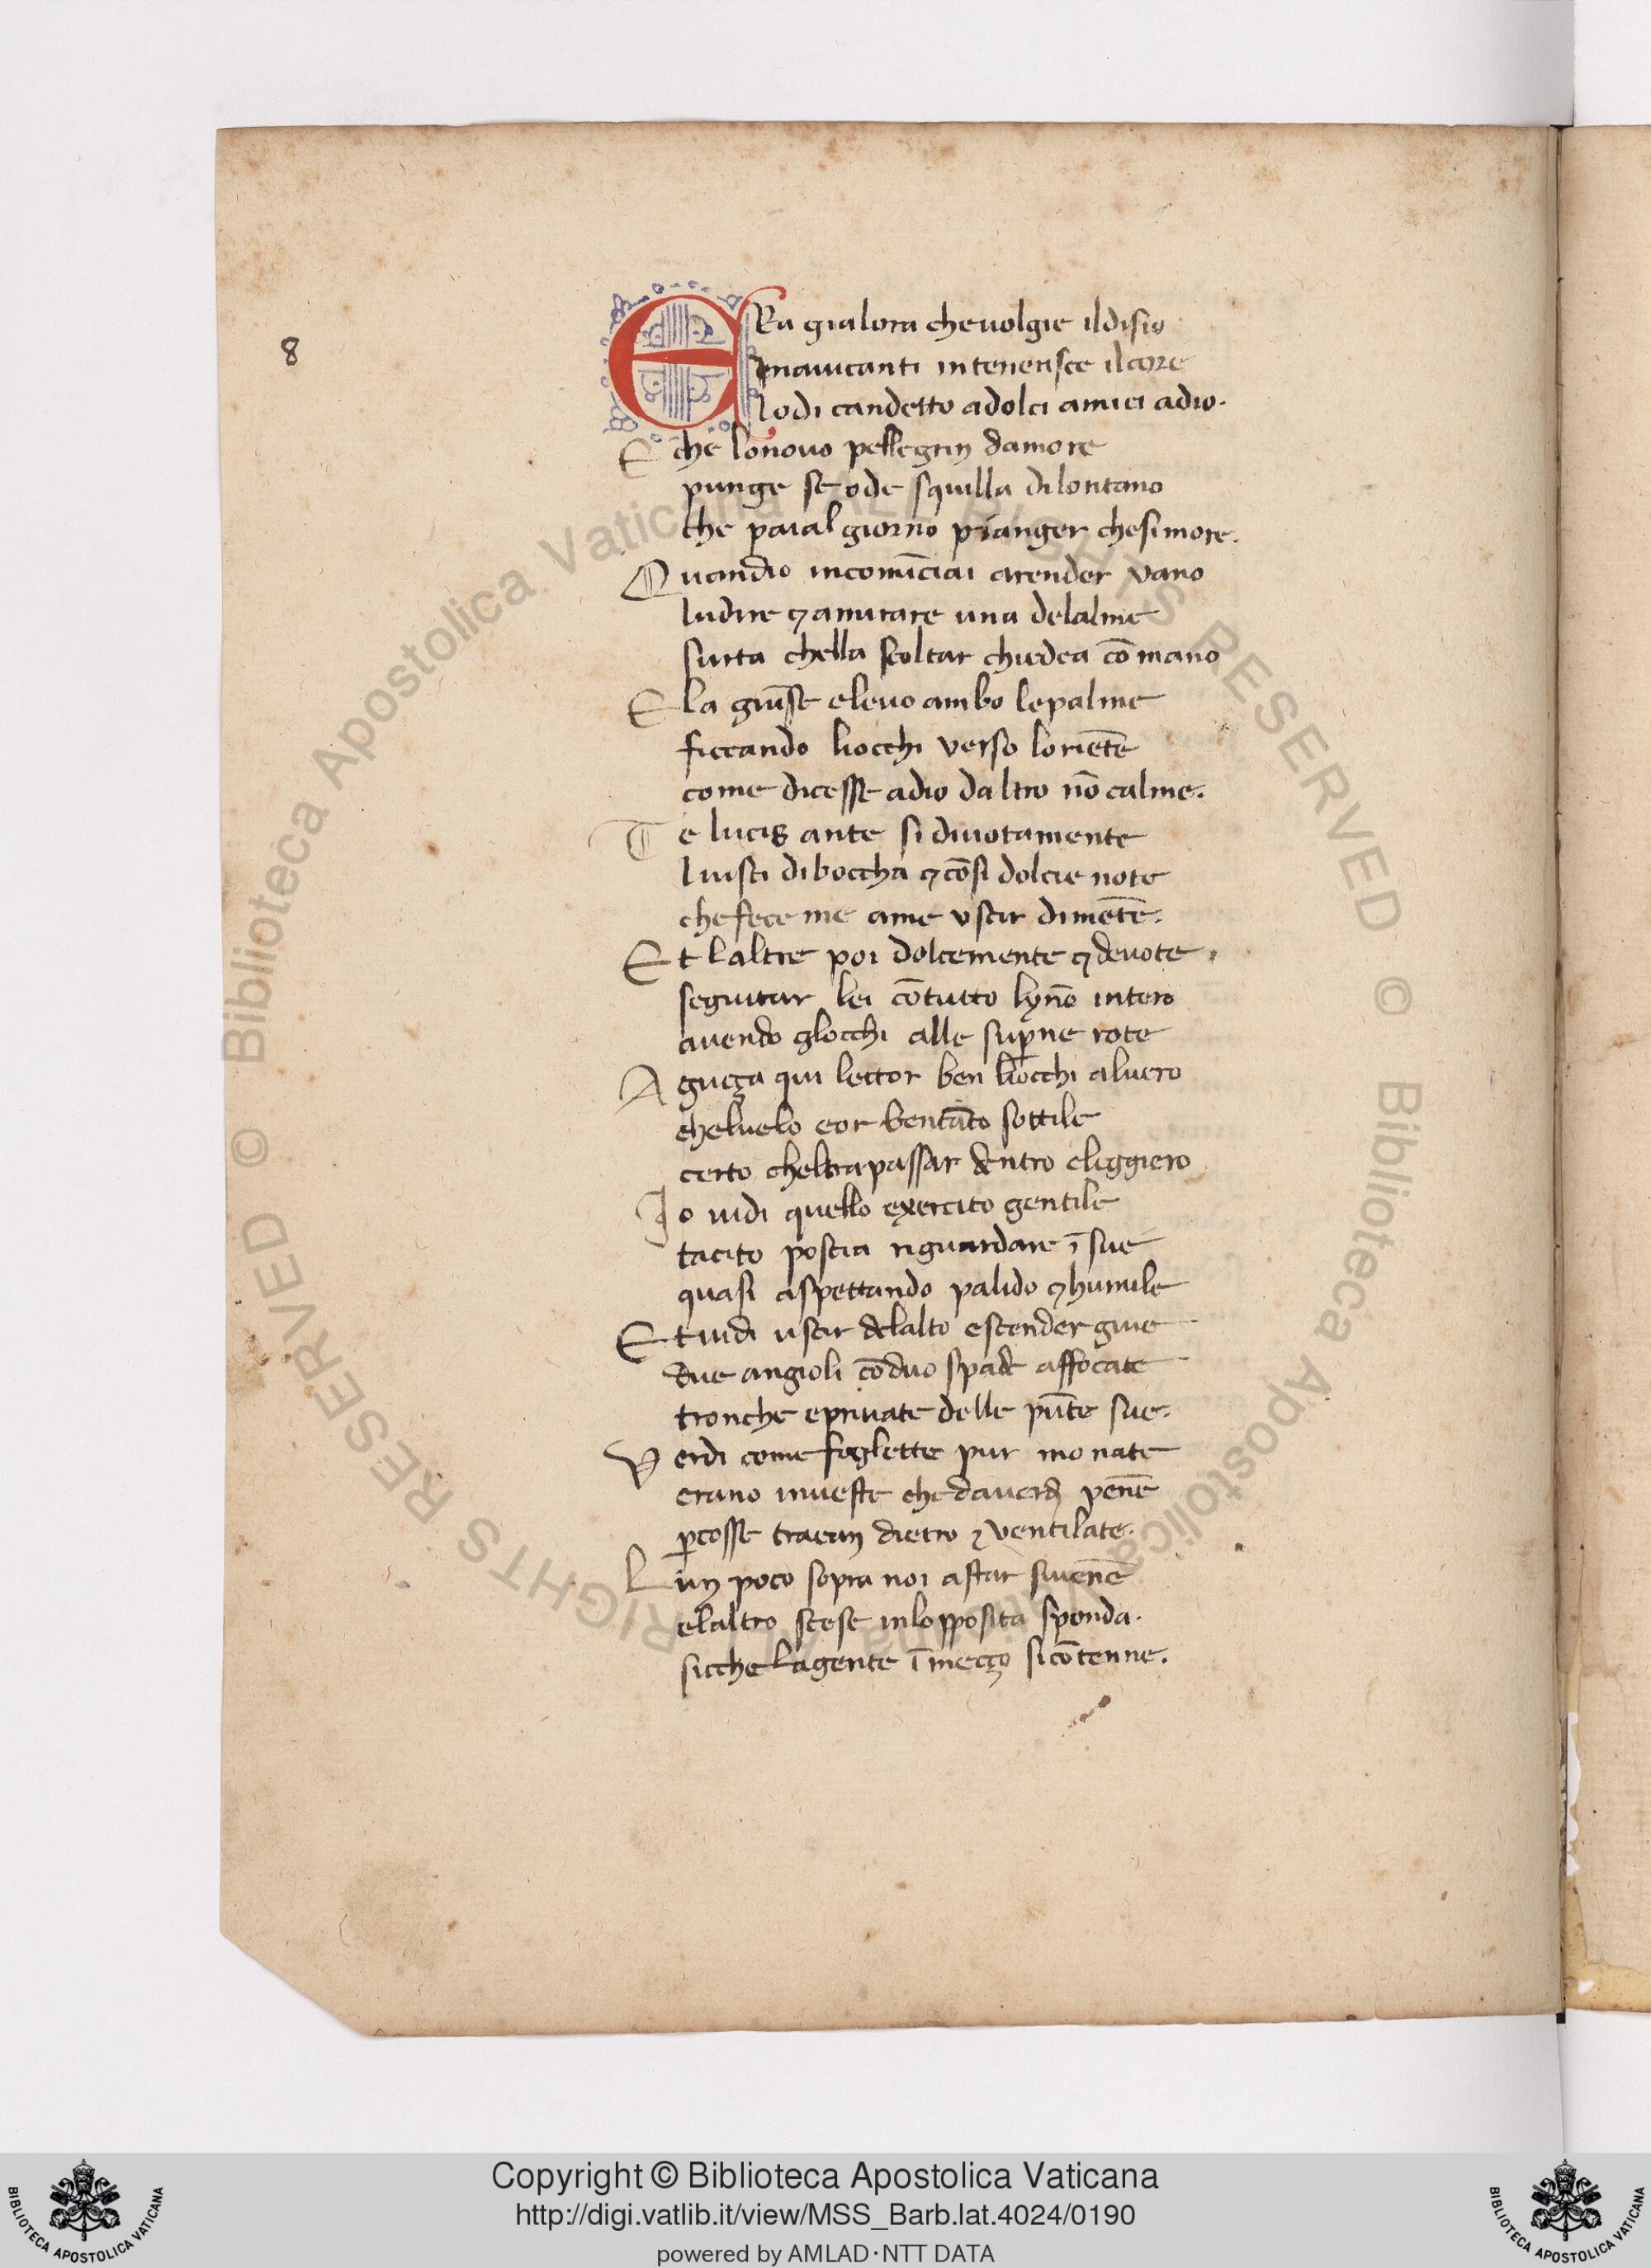 8
ERa gialora cheuolgie ildisio
Anauicanti intenerisce ilcore
lodi candetto adolci amici adio.
E che lonouo pellegrin damore
punge se ode squilla dilontano
che paial giorno pianger chesimore.
Quando incomĩciai arender vano
ludire ⁊ amirare una delalme
surta chella scoltar chiedea cõ mano
Ella giũse eleuo ambo lepalme
ficcando liocchi verso loriẽte
come dicesse adio daltro nõ calme.
Te lucis ante si diuotamente
luisci diboccha ⁊ cõsi dolcie note
chefece me ame vscir dimẽte.
Et laltre poi dolcemente ⁊ deuote.
seguitar lei cõtutto lynõ intero
auendo glocchi alle sup̱ne rote
Aguçça qui lettor ben liocchi aluero
cheluelo eor bentãto sottile
certo cheltrapassar dentro eliggiero
Io uidi quello exercito gentile
tacito poscia riguardare ĩ sue
quasi aspettando palido ⁊ humile
Et uidi uscir delalto escender giue
due angioli cõ duo spade affocate
tronche epriuate delle pũte sue.
Verdi come foglette pur mo nate
erano inueste che dauerdi penẽ
p̱cosse traean dietro ⁊ ventilate.
Lun poco sopra noi astar siuenẽ
elaltro scese inlopposita sponda.
sicche lagente ĩ meçço sicõtenne.
© Biblioteca Apostolica Vaticana ALL RIGHTS RESERVED © Biblioteca Apostolica Vaticana ALL RIGHTS RESERVED
Copyright © Biblioteca Apostolica Vaticana
http://digi.vatlib.it/view/MSS_Barb.lat.4024/0190
powered by AMLAD·NTT DATA
BIBLIOTECA APOSTOLICA VATICANA
BIBLIOTECA APOSTOLICA VATICANA